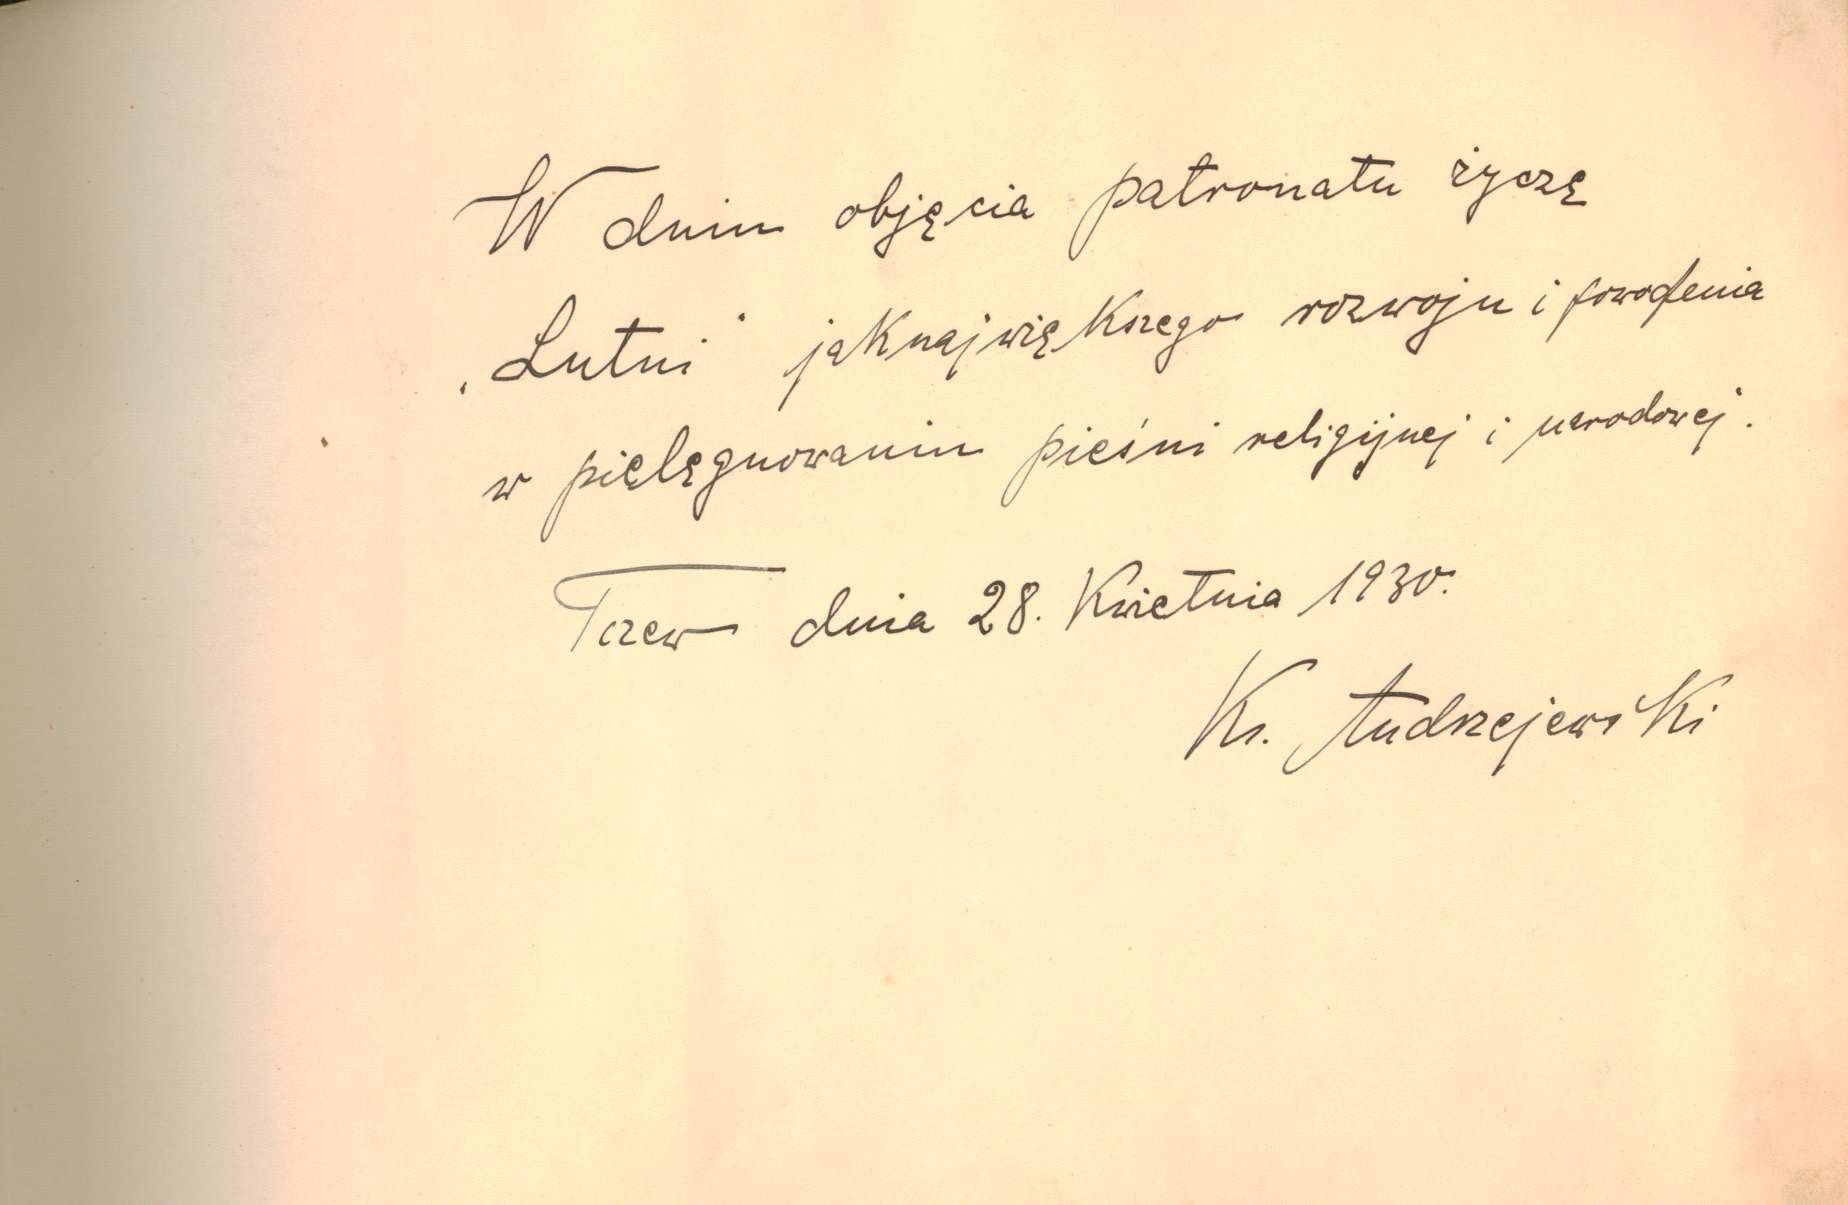 W dniu objęcia patronatu życzę
„Lutni" jaknajwiększego rozwoju i powodzenia
w pięlęgnowaniu pieśni religijnej i narodowej.
Tczew dnia 28. Kwietnia 1930.
Ks. Andrzejewski